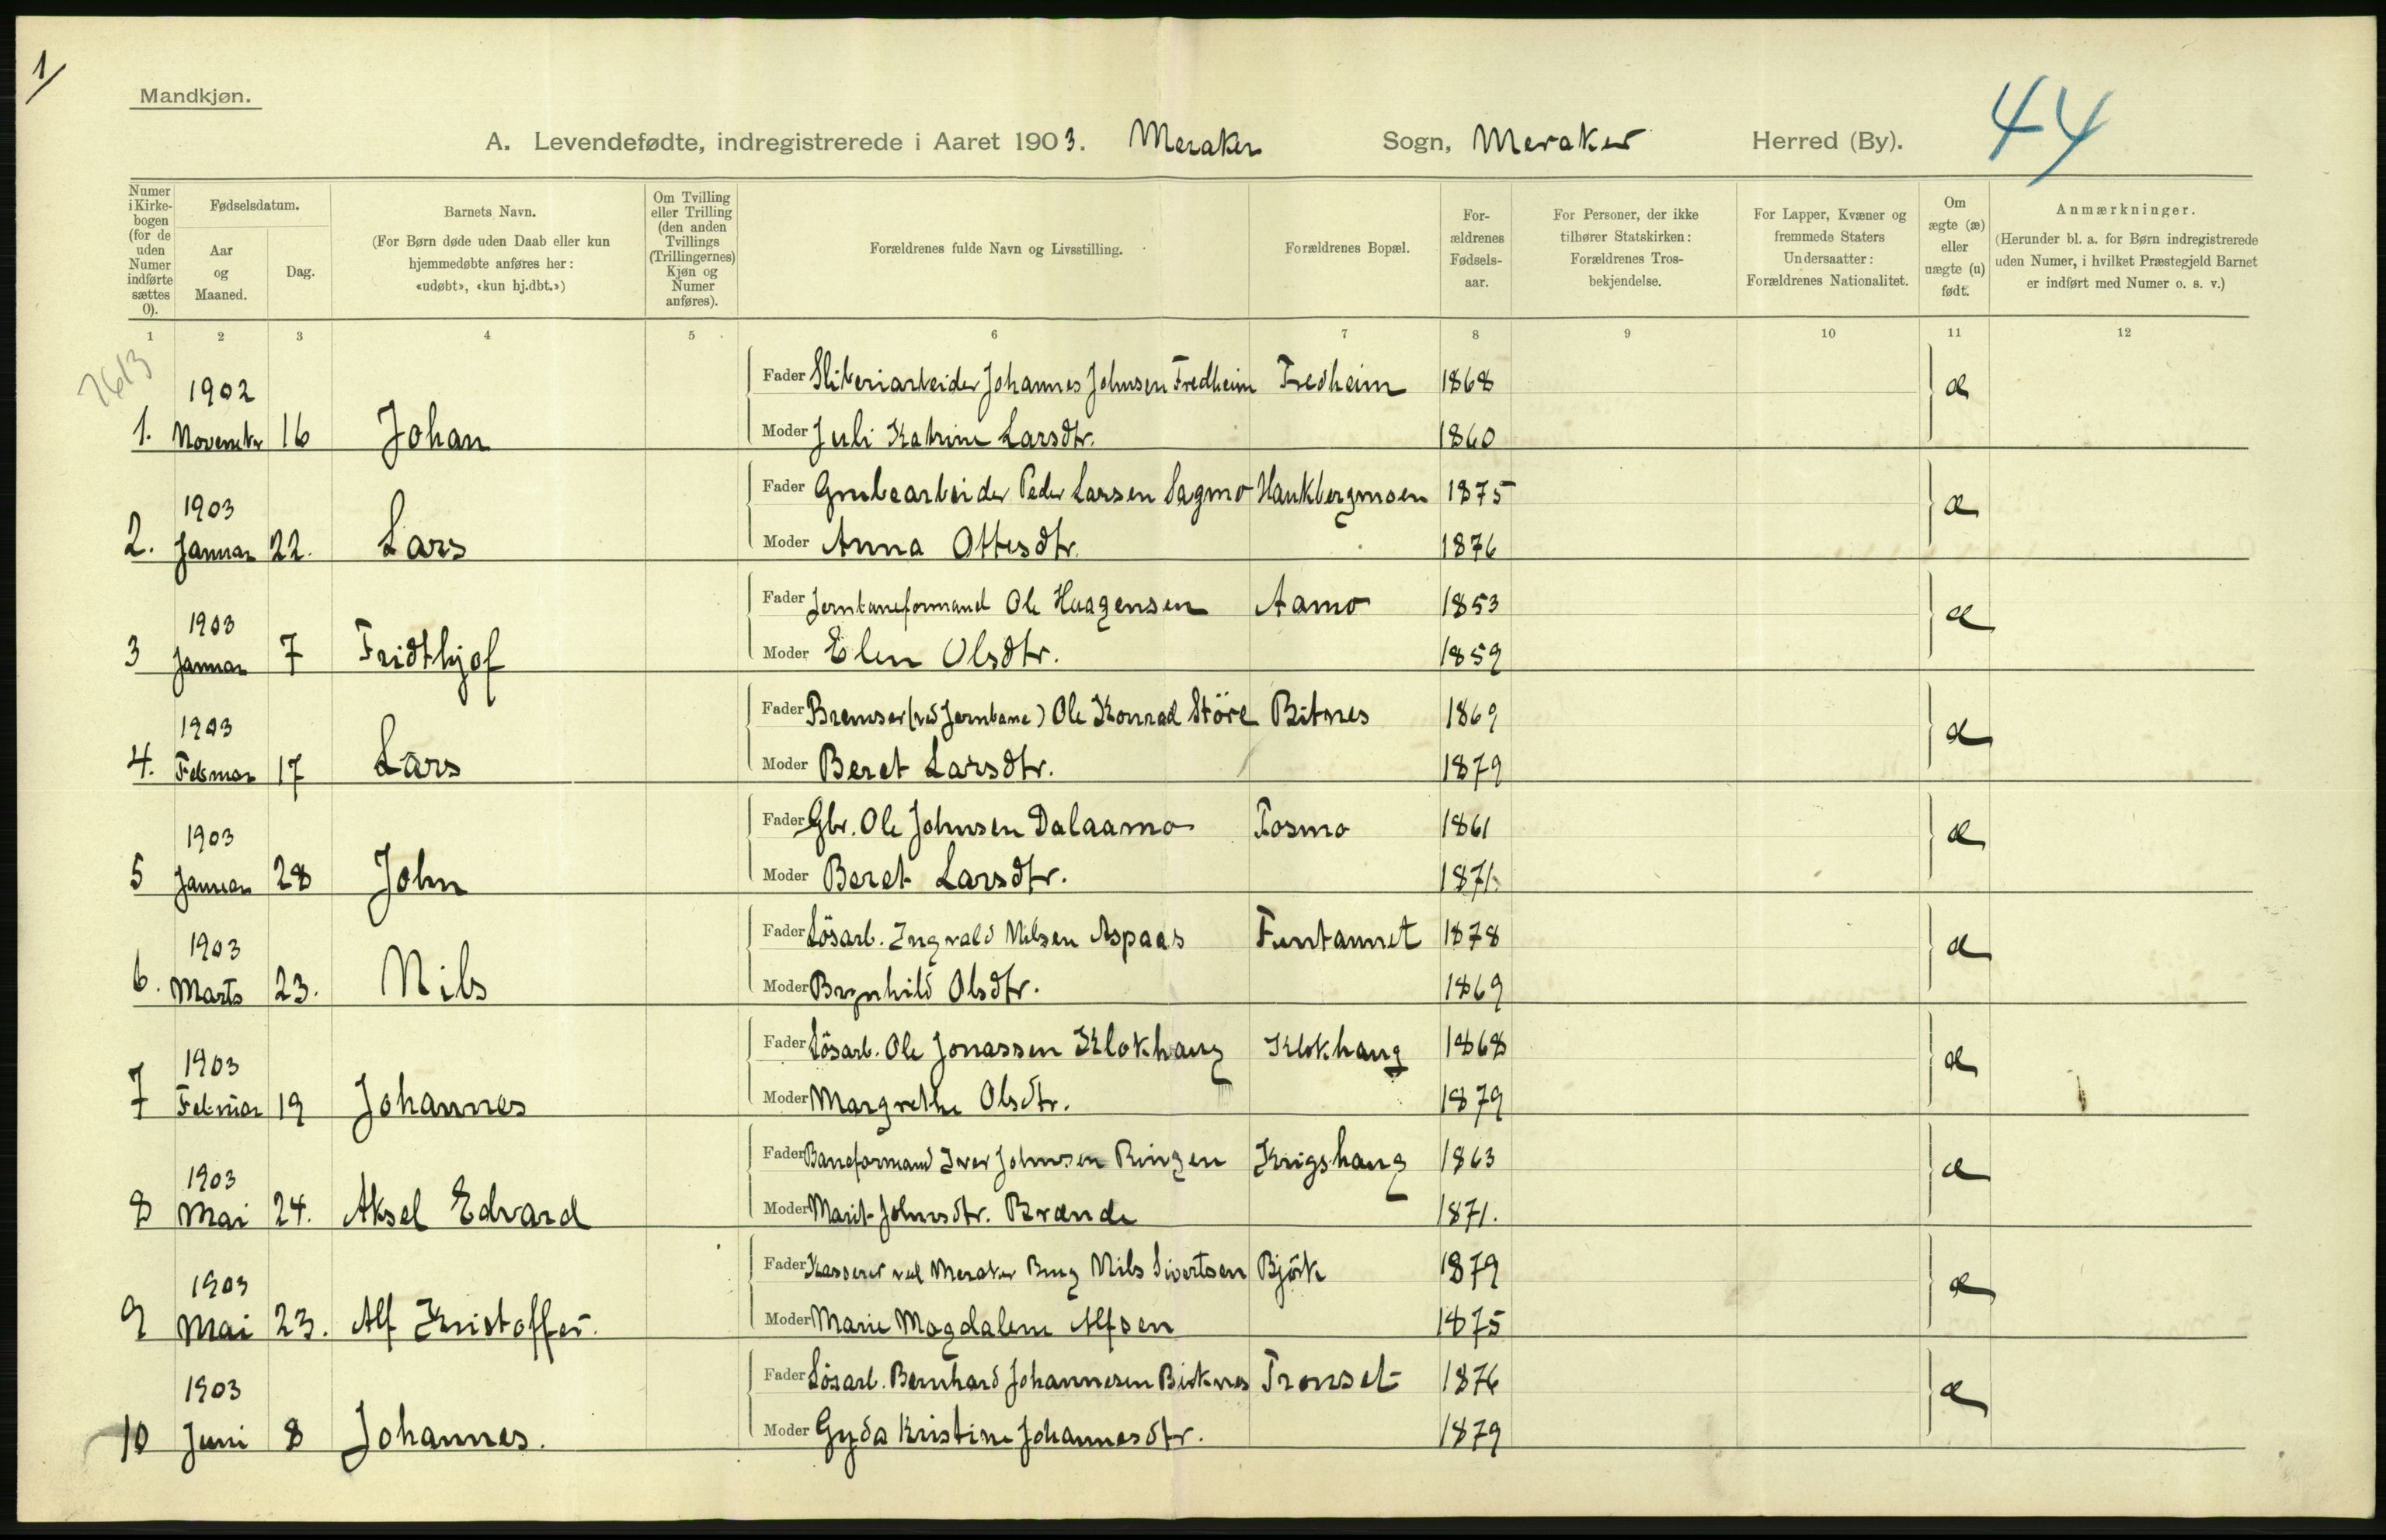 1/
Mandkjøn.
44
A. Levendefødte, indregistrerede i Aaret 1903. Meraker Sogn, Meraker Herred (By).
Numer i Kirkebogen (for de uden Numer indførte sættes 0).
Fødselsdatum.
Aar og Maaned.
Dag.
Barnets Navn.
(For Børn døde uden Daab eller kun hjemmedøbte anføres her: «udøbt», «kun hj.dbt.»)
Om Tvilling eller Trilling (den anden Tvillings (Trillingernes) Kjøn og Numer anføres).
Forældrenes fulde Navn og Livsstilling.
Forældrenes Bopæl.
For-ældrenes Fødsels-aar.
For Personer, der ikke tilhører Statskirken: Forældrenes Tros-bekjendelse.
For Lapper, Kvæner og fremmede Staters Undersaatter: Forældrenes Nationalitet.
Om ægte (æ) eller uægte (u) født.
Anmærkninger.
(Herunder bl. a. for Børn indregistrerede uden Numer, i hvilket Præstegjeld Barnet er indført med Numer o. s. v.)
1 2 3 4 5 6 7 8 9 10 11 12
7613
1902 Fader Sliberiarbeider Johannes Johnsen Fredheim Fredheim 1868 æ
1. November 16 Johan Moder Juli Katrine Larsdtr. 1860
1903 Fader Grubearbeider Peder Larsen Sagmo Haukbergmoen 1875 æ
2. Januar 22. Lars Moder Anna Ottesdtr. 1876
1903 Fader Jernbaneformand Ole Haagensen Aamo 1853 æ
3 Januar 7 Fridthjof Moder Elen Olsdtr. 1859
1903 Fader Bremser (ved Jernbane) Ole Konrad Störe Bitnes 1869 æ
4. Februar 17 Lars Moder Beret Larsdtr. 1879
1903 Fader Gbr. Ole Johnsen Dalaamo Fosmo 1861 æ
5 Januar 28 John Moder Beret Larsdtr. 1871.
1903 Fader Lösarb. Ingvald Nilsen Aspaas Funtaunet 1878 æ
6. Marts 23. Nils Moder Brynhild Olsdtr. 1869
1903 Fader Lösarb. Ole Jonassen Klokhaug Klokhaug 1868 æ
7 Februar 19 Johannes Moder Margrethe Olsdtr. 1879
1903 Fader Baneformand Iver Johnsen Ringen Krigshaug 1863 æ
8 Mai 24. Aksel Edvard Moder Marit Johnsdtr. Brænde 1871.
1903 Fader Kasserer ved Meraker Brug Nils Sivertsen Björk 1879 æ
9 Mai 23. Alf Kristoffer. Moder Marie Magdalene Alfsen 1875
1903 Fader Lösarb. Bernhard Johannesen Bitnes Tronset 1876 æ
10 Juni 8 Johannes. Moder Gyda Kristine Johannesdtr. 1879